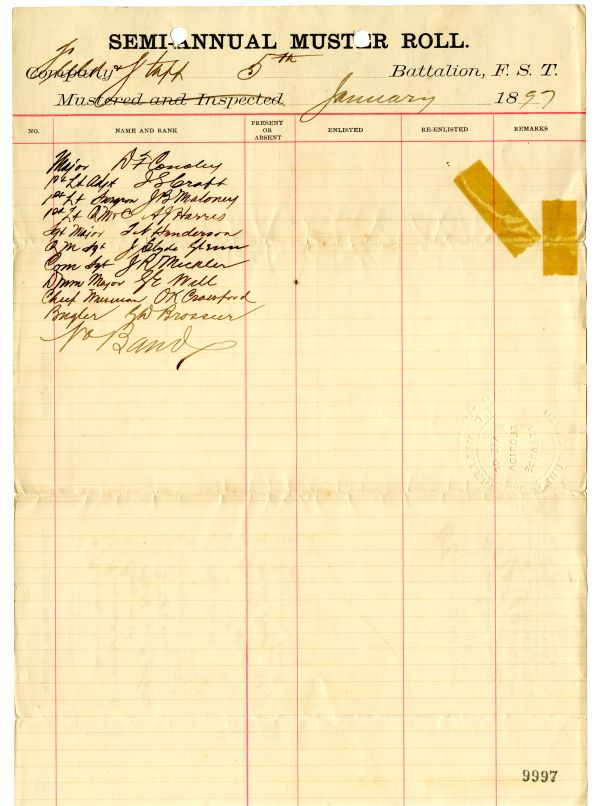 SEMI-ANNUAL MUSTER ROLL.
Company Field & Staff 5th Battalion, F. S. T.
Mustered and Inspected January 1897
NO. NAME AND RANK PRESENT OR ABSENT ENLISTED RE-ENLISTED REMARKS
Major D F Conoley
1st Lt Adjt J S Craft
1st Lt Surgeon J B Maloney
1st Lt Q M & C A J Harris
Sgt Major Henderson
Q M Sgt J Clyde
Com Sgt J P Mickler
Drum Major G E Will
Chief Musician O K Crawford
Bugler Brossier
No Band
9997